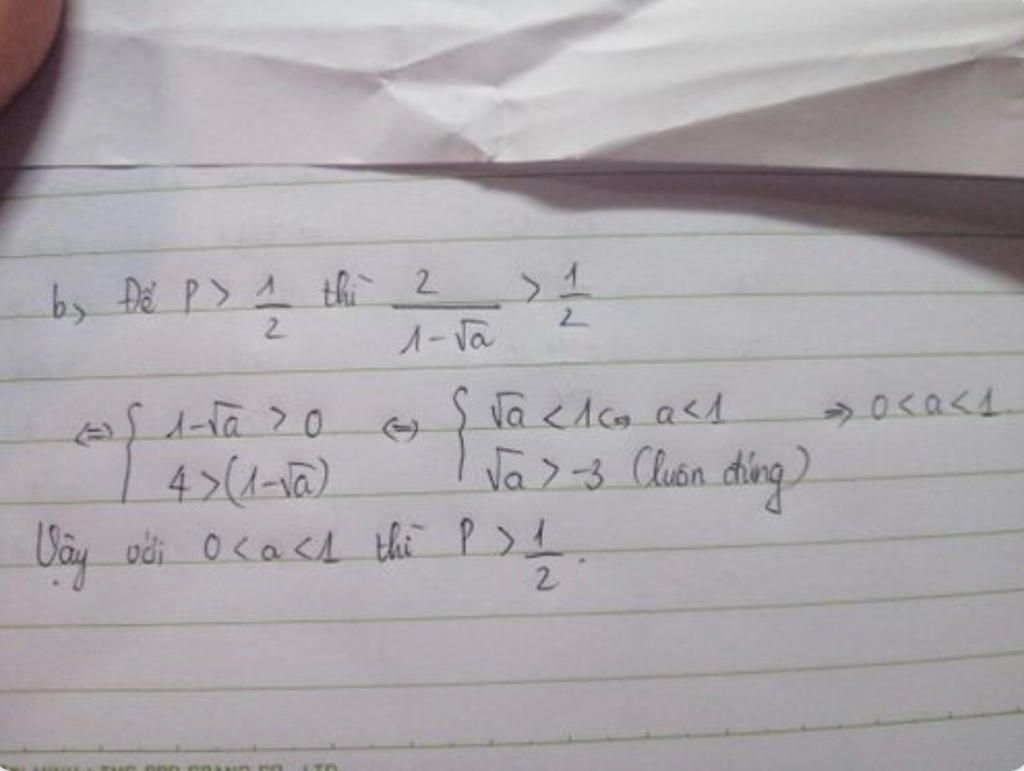 b, Để P > 1/2 thì 2/(1-√a) > 1/2
⇔ { 1-√a > 0 ; 4 > (1-√a) ⇔ { √a < 1 ⇔ a < 1 ; √a > -3 (luôn đúng) ⇒ 0 < a < 1
Vậy với 0 < a < 1 thì P > 1/2 .